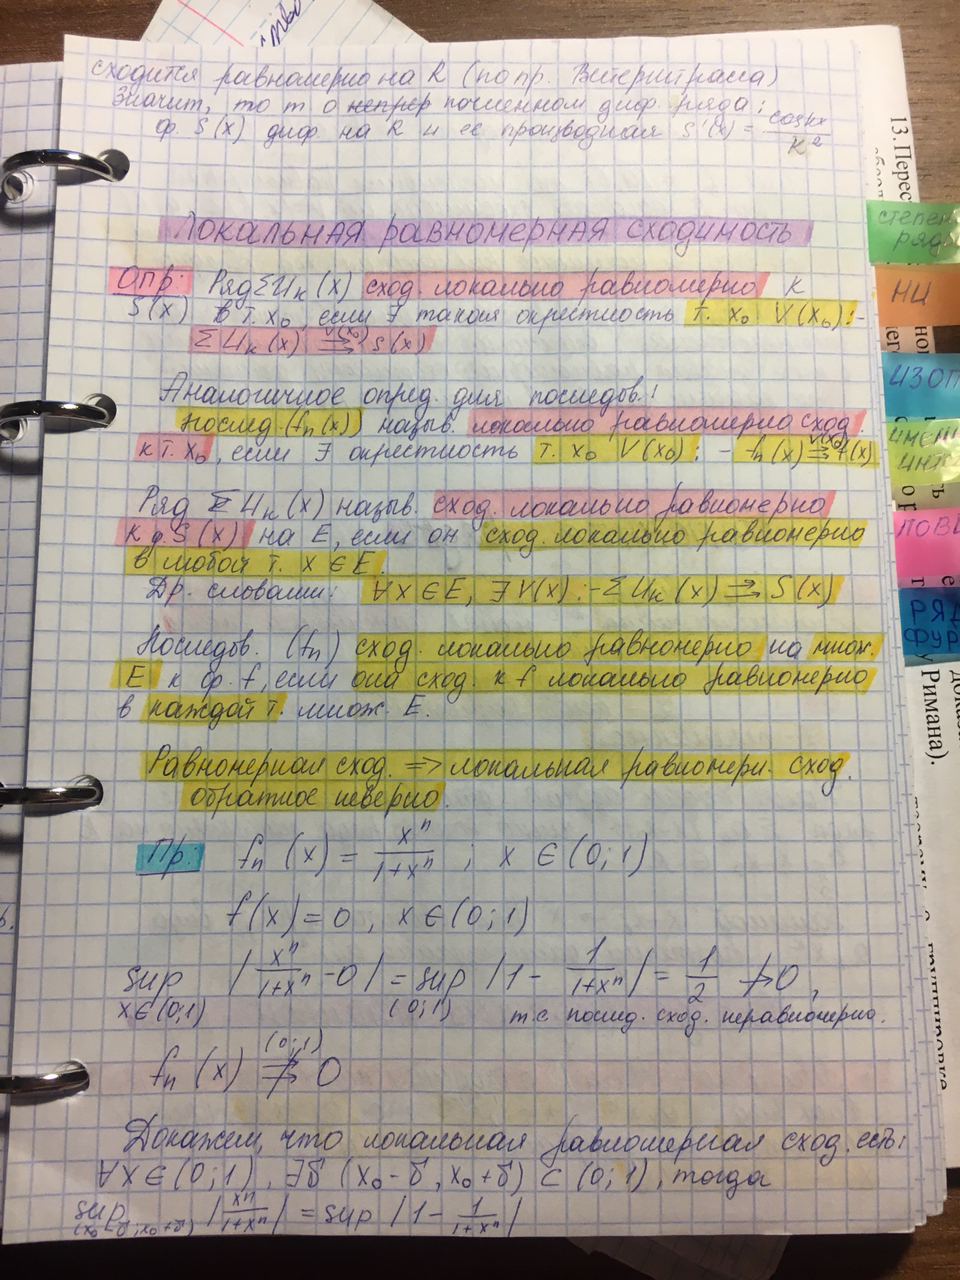 сходится равномерно на R (по пр. Вейерштрасса)
Значит, то т о непрер почленном диф. ряда:
ф. S(x) диф. на R и ее производная S'(x) = coskx / k²
Локальная равномерная сходимость
Опр: Ряд ΣUₖ(x) сход. локально равномерно к
S(x) в т. x₀, если ∃ такая окрестность т. x₀ V(x₀):-
ΣUₖ(x) ⇉ S(x) V(x₀)
Аналогичное опред. для последов.:
Послед. (fₙ(x)) назыв. локально равномерно сход.
к т. x₀, если ∃ окрестность т. x₀ V(x₀): - fₙ(x) ⇉ f(x) V(x₀)
Ряд ΣUₖ(x) назыв. сход. локально равномерно
к ф. S(x) на E, если он сход. локально равномерно
в любой т. x ∈ E.
Др. словами: ∀x ∈ E, ∃ V(x):- ΣUₖ(x) ⇉ S(x)
Последов. (fₙ) сход. локально равномерно на множ.
E к ф. f, если она сход. к f локально равномерно
в каждой т. множ. E.
Равномерная сход. ⇒ локальная равномерн. сход.
обратное неверно.
Пр: fₙ(x) = xⁿ / 1+xⁿ ; x ∈ (0;1)
f(x) = 0, x ∈ (0;1)
sup x∈(0;1) | xⁿ / 1+xⁿ - 0 | = sup (0;1) |1 - 1 / 1+xⁿ| = 1/2 ↛ 0,
т е послед. сход. неравномерно.
fₙ(x) ⇉̸ 0 (0;1)
Докажем, что локальная равномерная сход. есть:
∀x ∈ (0;1), ∃δ (x₀-δ, x₀+δ) ⊂ (0;1), тогда
sup (x₀-δ; x₀+δ) | xⁿ / 1+xⁿ | = sup |1 - 1 / 1+xⁿ|
13. Перес
степен
ряды
НИ
ИЗОП
ИНТ
ПОВЕ
РЯД
ФУР
Римана).